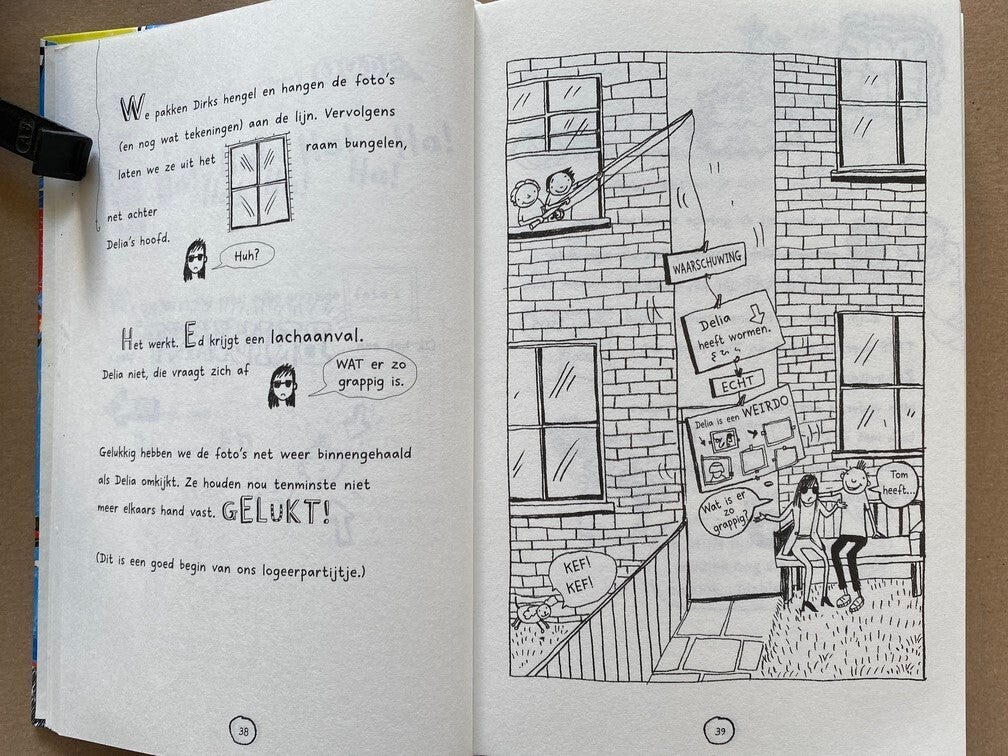 We pakken Dirks hengel en hangen de foto's
(en nog wat tekeningen) aan de lijn. Vervolgens
laten we ze uit het raam bungelen,
net achter
Delia's hoofd.
Huh?
Het werkt. Ed krijgt een lachaanval.
Delia niet, die vraagt zich af
WAT er zo
grappig is.
Gelukkig hebben we de foto's net weer binnengehaald
als Delia omkijkt. Ze houden nou tenminste niet
meer elkaars hand vast. GELUKT!
(Dit is een goed begin van ons logeerpartijtje.)
38
WAARSCHUWING
Delia
heeft wormen.
ECHT
Delia is een WEIRDO
Wat is er
zo
grappig?
Tom
heeft...
KEF!
KEF!
39